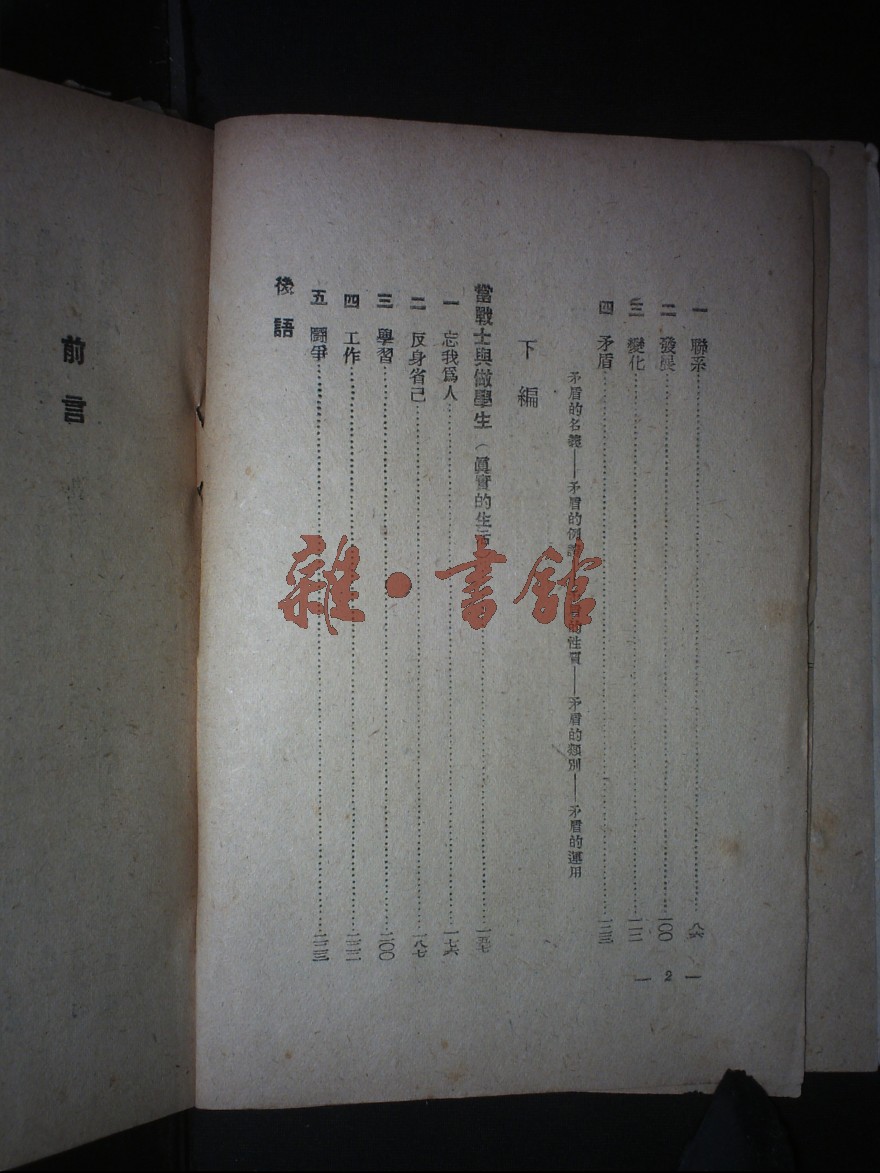 一 聯系……八六
二 發展……一〇〇
三 變化……一一二
四 矛盾……一二三
矛盾的名義——矛盾的例證 盾的性質——矛盾的類別——矛盾的運用
下 編
當戰士與做學生（眞實的生活……一五七
一 忘我爲人……一七六
二 反身省己……一八七
三 學習……二〇〇
四 工作
五 鬭爭
後 語
— 2 —
前 言
雜·書館